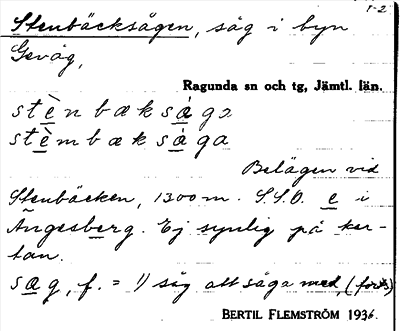 1-2
Stenbäcksågen, såg i byn
Gevåg,
Ragunda sn och tg, Jämtl. län.
stènbæksága
stèmbæksága
Belägen vid
Stenbäcken, 1300 m. S.S.O. e i
Ängesberg. Ej synlig på kar-
tan.
sag, f. = 1) såg att såga med, (forts)
BERTIL FLEMSTRÖM 1936.